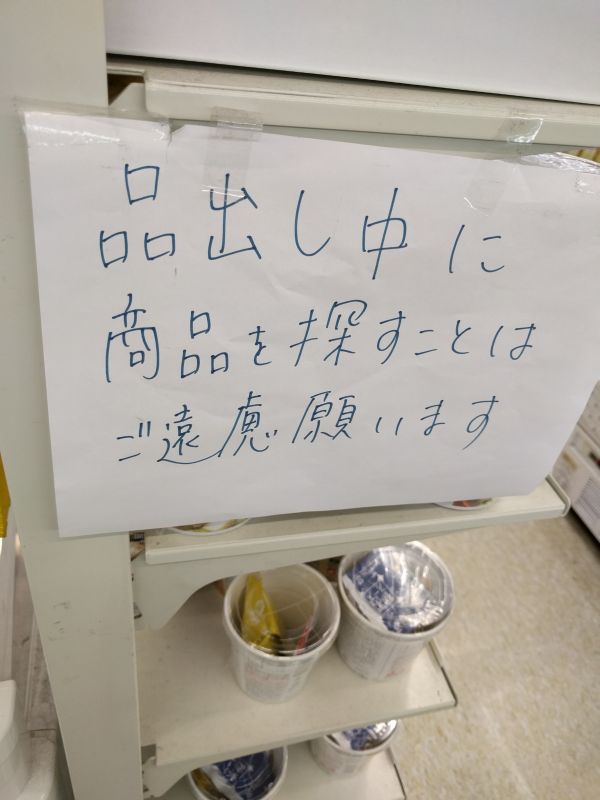 品出し中に
商品を探すことは
ご遠慮願います